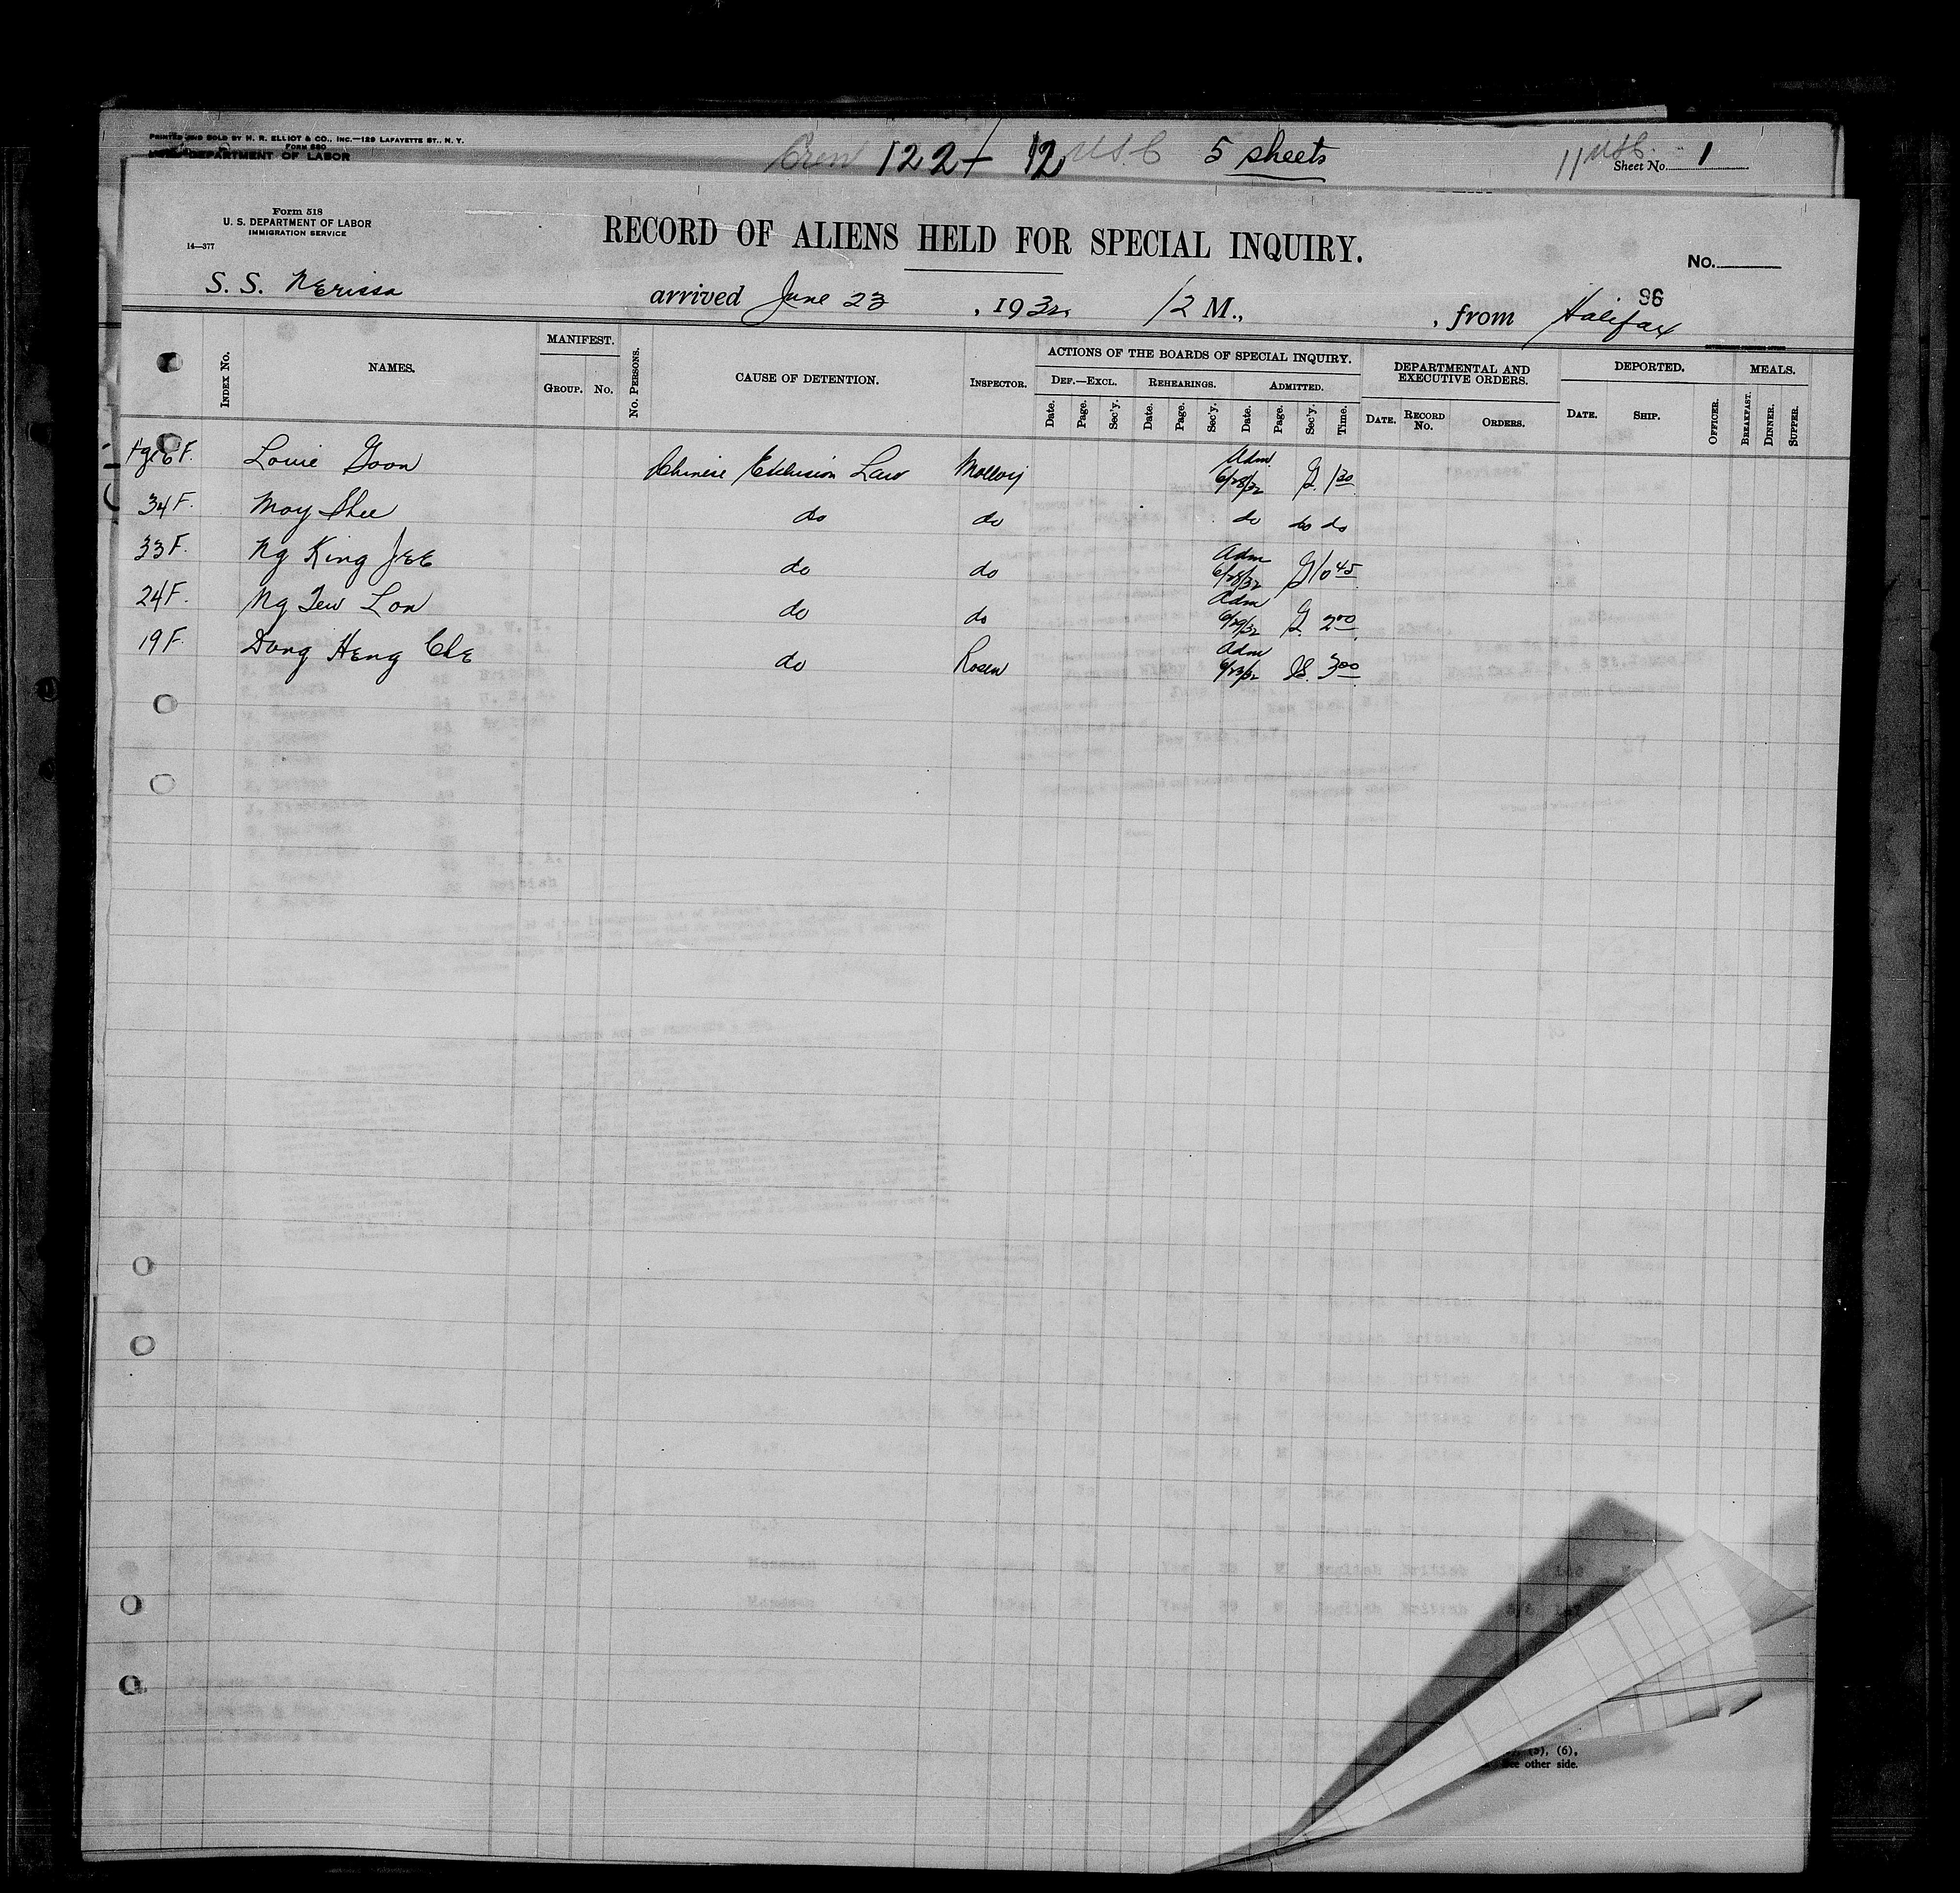 PRINTED AND SOLD BY H. R. ELLIOT & CO., INC.—129 LAFAYETTE ST., N. Y.
FORM 680
DEPARTMENT OF LABOR
Crew 122 + 12 USC 5 sheets
11 USC. Sheet No. 1
Form 518
U. S. DEPARTMENT OF LABOR
IMMIGRATION SERVICE
14—377
RECORD OF ALIENS HELD FOR SPECIAL INQUIRY.
No.
96
S. S. Nerissa arrived June 23, 1932, 12 M., , from Halifax
INDEX No. NAMES. MANIFEST. GROUP. No. No. PERSONS. CAUSE OF DETENTION. INSPECTOR. ACTIONS OF THE BOARDS OF SPECIAL INQUIRY. DEF.—EXCL. Date. Page. Sec'y. REHEARINGS. Date. Page. Sec'y. ADMITTED. Date. Page. Sec'y. Time. DEPARTMENTAL AND EXECUTIVE ORDERS. DATE. RECORD No. ORDERS. DEPORTED. DATE. SHIP. OFFICER. MEALS. BREAKFAST. DINNER. SUPPER.
F. Louie Goon Chinese Exclusion Law Molloy Adm. 6/28/32 1 30
34 F. Moy Shee do do do do do
33 F. Ng King Jee do do Adm 6/28/32 10 45
24 F. Ng Tew Lon do do Adm 6/29/32 2 00
19 F. Dong Heng Che do Rosen Adm 6/23/32 3 00
(5), (6),
See other side.